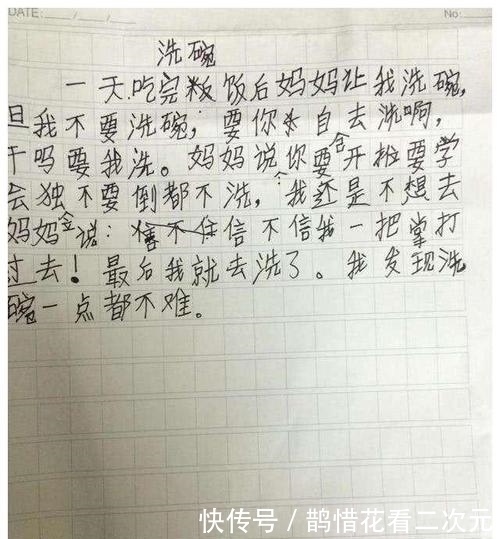 DATE: / /
No:
洗碗
一天,吃完饭后妈妈让我洗碗,
但我不要洗碗,要你自去洗啊,
干吗要我洗。妈妈说你要开
会独不要倒都不洗,我还是不想去
妈妈说:信不信我一把掌打
过去!最后我就去洗了。我发现洗
碗一点都不难。
快传号/鹊惜花看二次元